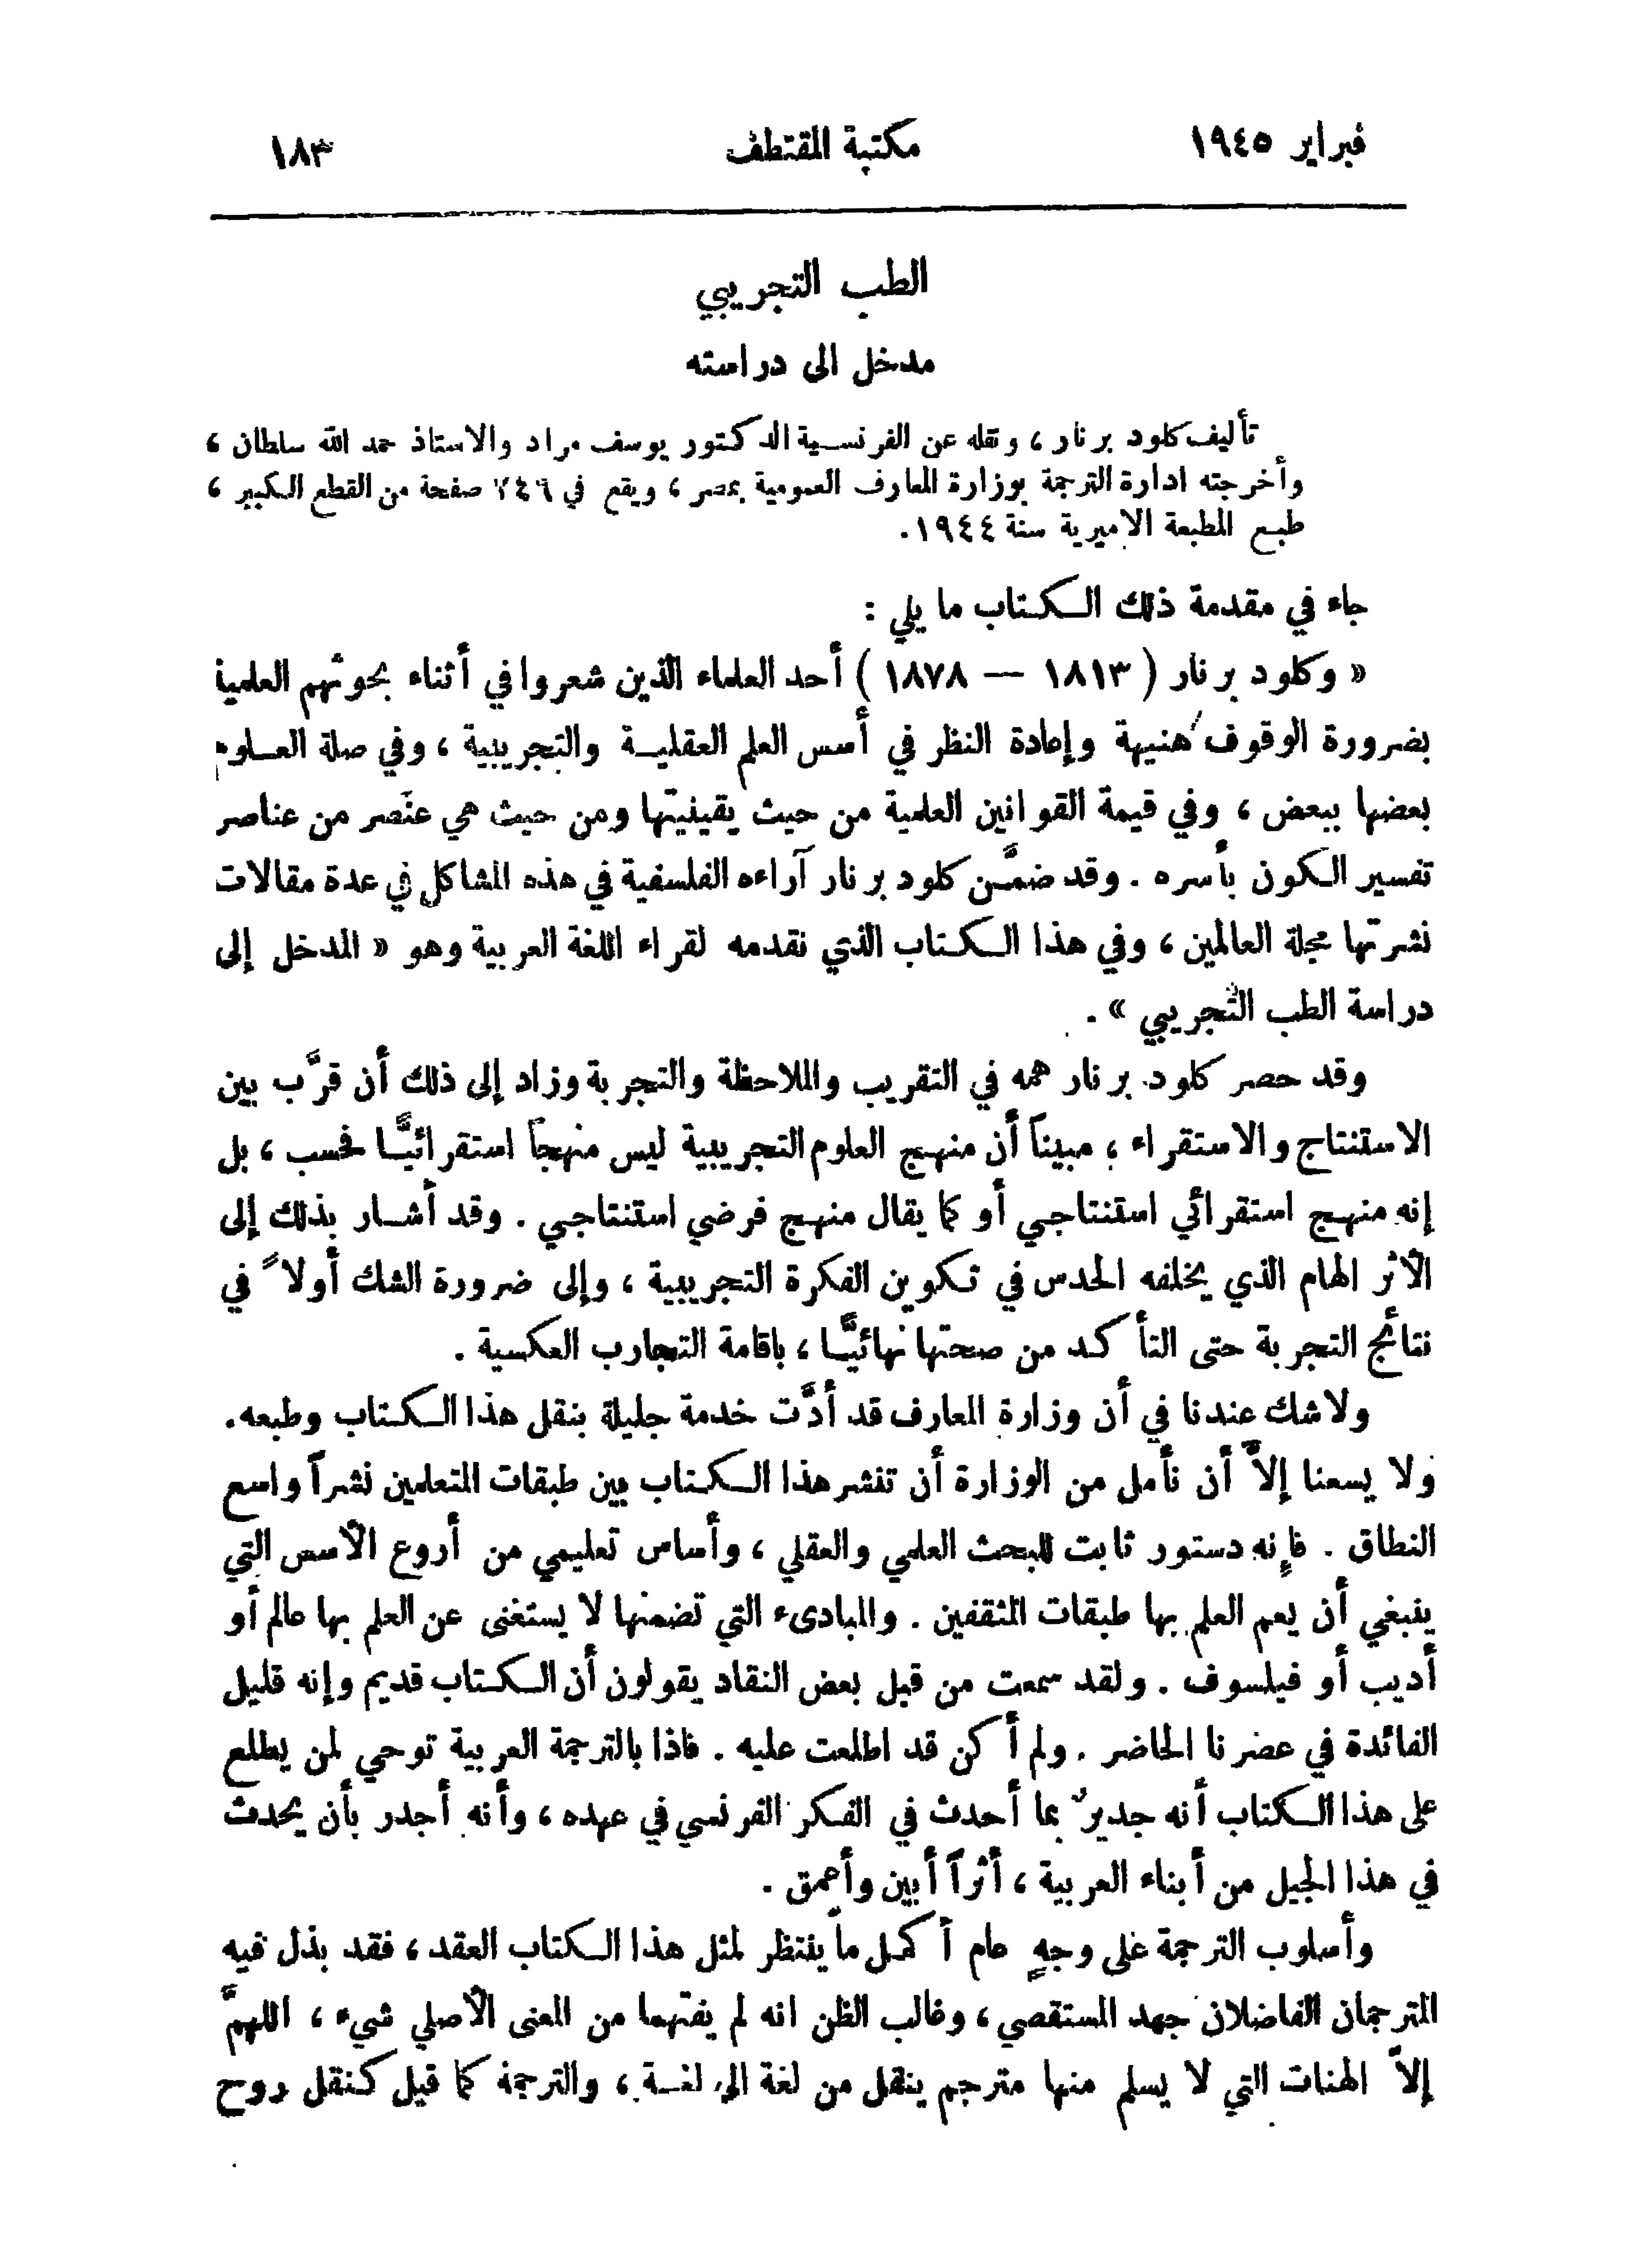 فبراير ١٩٤٥ مكتبة المقتطف ١٨٣
الطب التجريبي
مدخل الى دراسته
تأليف كلود برنار ، ونقله عن الفرنسية الدكتور يوسف مراد والاستاذ حمد الله سلطان ،
وأخرجته ادارة الترجمة بوزارة المعارف العمومية بمصر ، ويقع في ٢٤٦ صفحة من القطع الكبير ،
طبع المطبعة الاميرية سنة ١٩٤٤ .
جاء في مقدمة ذلك الكتاب ما يلي :
« وكلود برنار ( ١٨١٣ — ١٨٧٨ ) أحد العلماء الذين شعروا في أثناء بحوثهم العلمية
بضرورة الوقوف هنيهة وإعادة النظر في أسس العلم العقلية والتجريبية ، وفي صلة العلوم
بعضها ببعض ، وفي قيمة القوانين العلمية من حيث يقينيتها ومن حيث هي عنصر من عناصر
تفسير الكون بأسره . وقد ضمَّن كلود برنار آراءه الفلسفية في هذه المشاكل في عدة مقالات
نشرتها مجلة العالمين ، وفي هذا الكتاب الذي نقدمه لقراء اللغة العربية وهو « المدخل إلى
دراسة الطب التجريبي » .
وقد حصر كلود برنار همه في التقريب والملاحظة والتجربة وزاد إلى ذلك أن قرَّب بين
الاستنتاج والاستقراء ، مبيناً أن منهج العلوم التجريبية ليس منهجاً استقرائيًّا فحسب ، بل
إنه منهج استقرائي استنتاجي أو كما يقال منهج فرضي استنتاجي . وقد أشار بذلك إلى
الأثر الهام الذي يخلفه الحدس في تكوين الفكرة التجريبية ، وإلى ضرورة الشك أولاً في
نتائج التجربة حتى التأكد من صحتها نهائيًّا ، باقامة التجارب العكسية .
ولا شك عندنا في أن وزارة المعارف قد أدَّت خدمة جليلة بنقل هذا الكتاب وطبعه .
ولا يسعنا إلاَّ أن نأمل من الوزارة أن تنشر هذا الكتاب بين طبقات المتعلمين نشراً واسع
النطاق . فإنه دستور ثابت للبحث العلمي والعقلي ، وأساس تعليمي من أروع الأسس التي
ينبغي أن يعم العلم بها طبقات المثقفين . والمبادىء التي تضمنها لا يستغنى عن العلم بها عالم أو
أديب أو فيلسوف . ولقد سمعت من قبل بعض النقاد يقولون أن الكتاب قديم وإنه قليل
الفائدة في عصرنا الحاضر . ولم أكن قد اطلعت عليه . فاذا بالترجمة العربية توحي لمن يطلع
على هذا الكتاب أنه جديرٌ بما أحدث في الفكر الفرنسي في عهده ، وأنه أجدر بأن يحدث
في هذا الجيل من أبناء العربية ، أثراً أبين وأعمق .
وأسلوب الترجمة على وجهٍ عام أكمل ما ينتظر لمثل هذا الكتاب العقد ، فقد بذل فيه
المترجمان الفاضلان جهد المستقصي ، وغالب الظن انه لم يفتهما من المعنى الأصلي شيء ، اللهمَّ
إلاَّ الهنات التي لا يسلم منها مترجم ينقل من لغة الى لغة ، والترجمة كما قيل كنقل روح